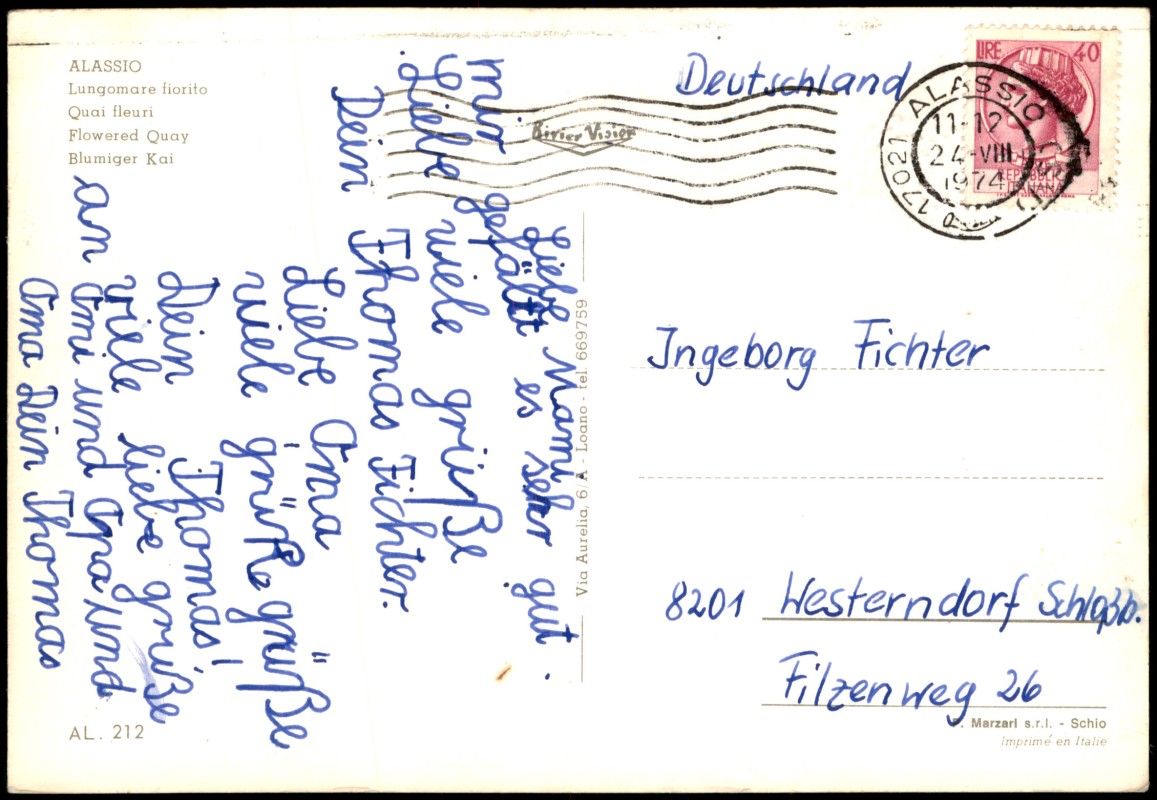 ALASSIO
Lungomare fiorito
Quai fleuri
Flowered Quay
Blumiger Kai
Liebe Mami
mir gefällt es sehr gut.
Liebe viele grüße
Dein Thomas Fichter.
Liebe Oma
viele grüße grüße
Dein Thomas!
viele liebe grüße
an Omi und Opa und
Oma Dein Thomas
AL. 212
Via Aurelia, 6/A - Loano - tel. 669759
Deutschland
LIRE 40
17021 ALASSIO
11-12
24-VIII
1974
Ingeborg Fichter
8201 Westerndorf Schloßb.
Filzenweg 26
Marzari s.r.l. - Schio
imprimé en Italie